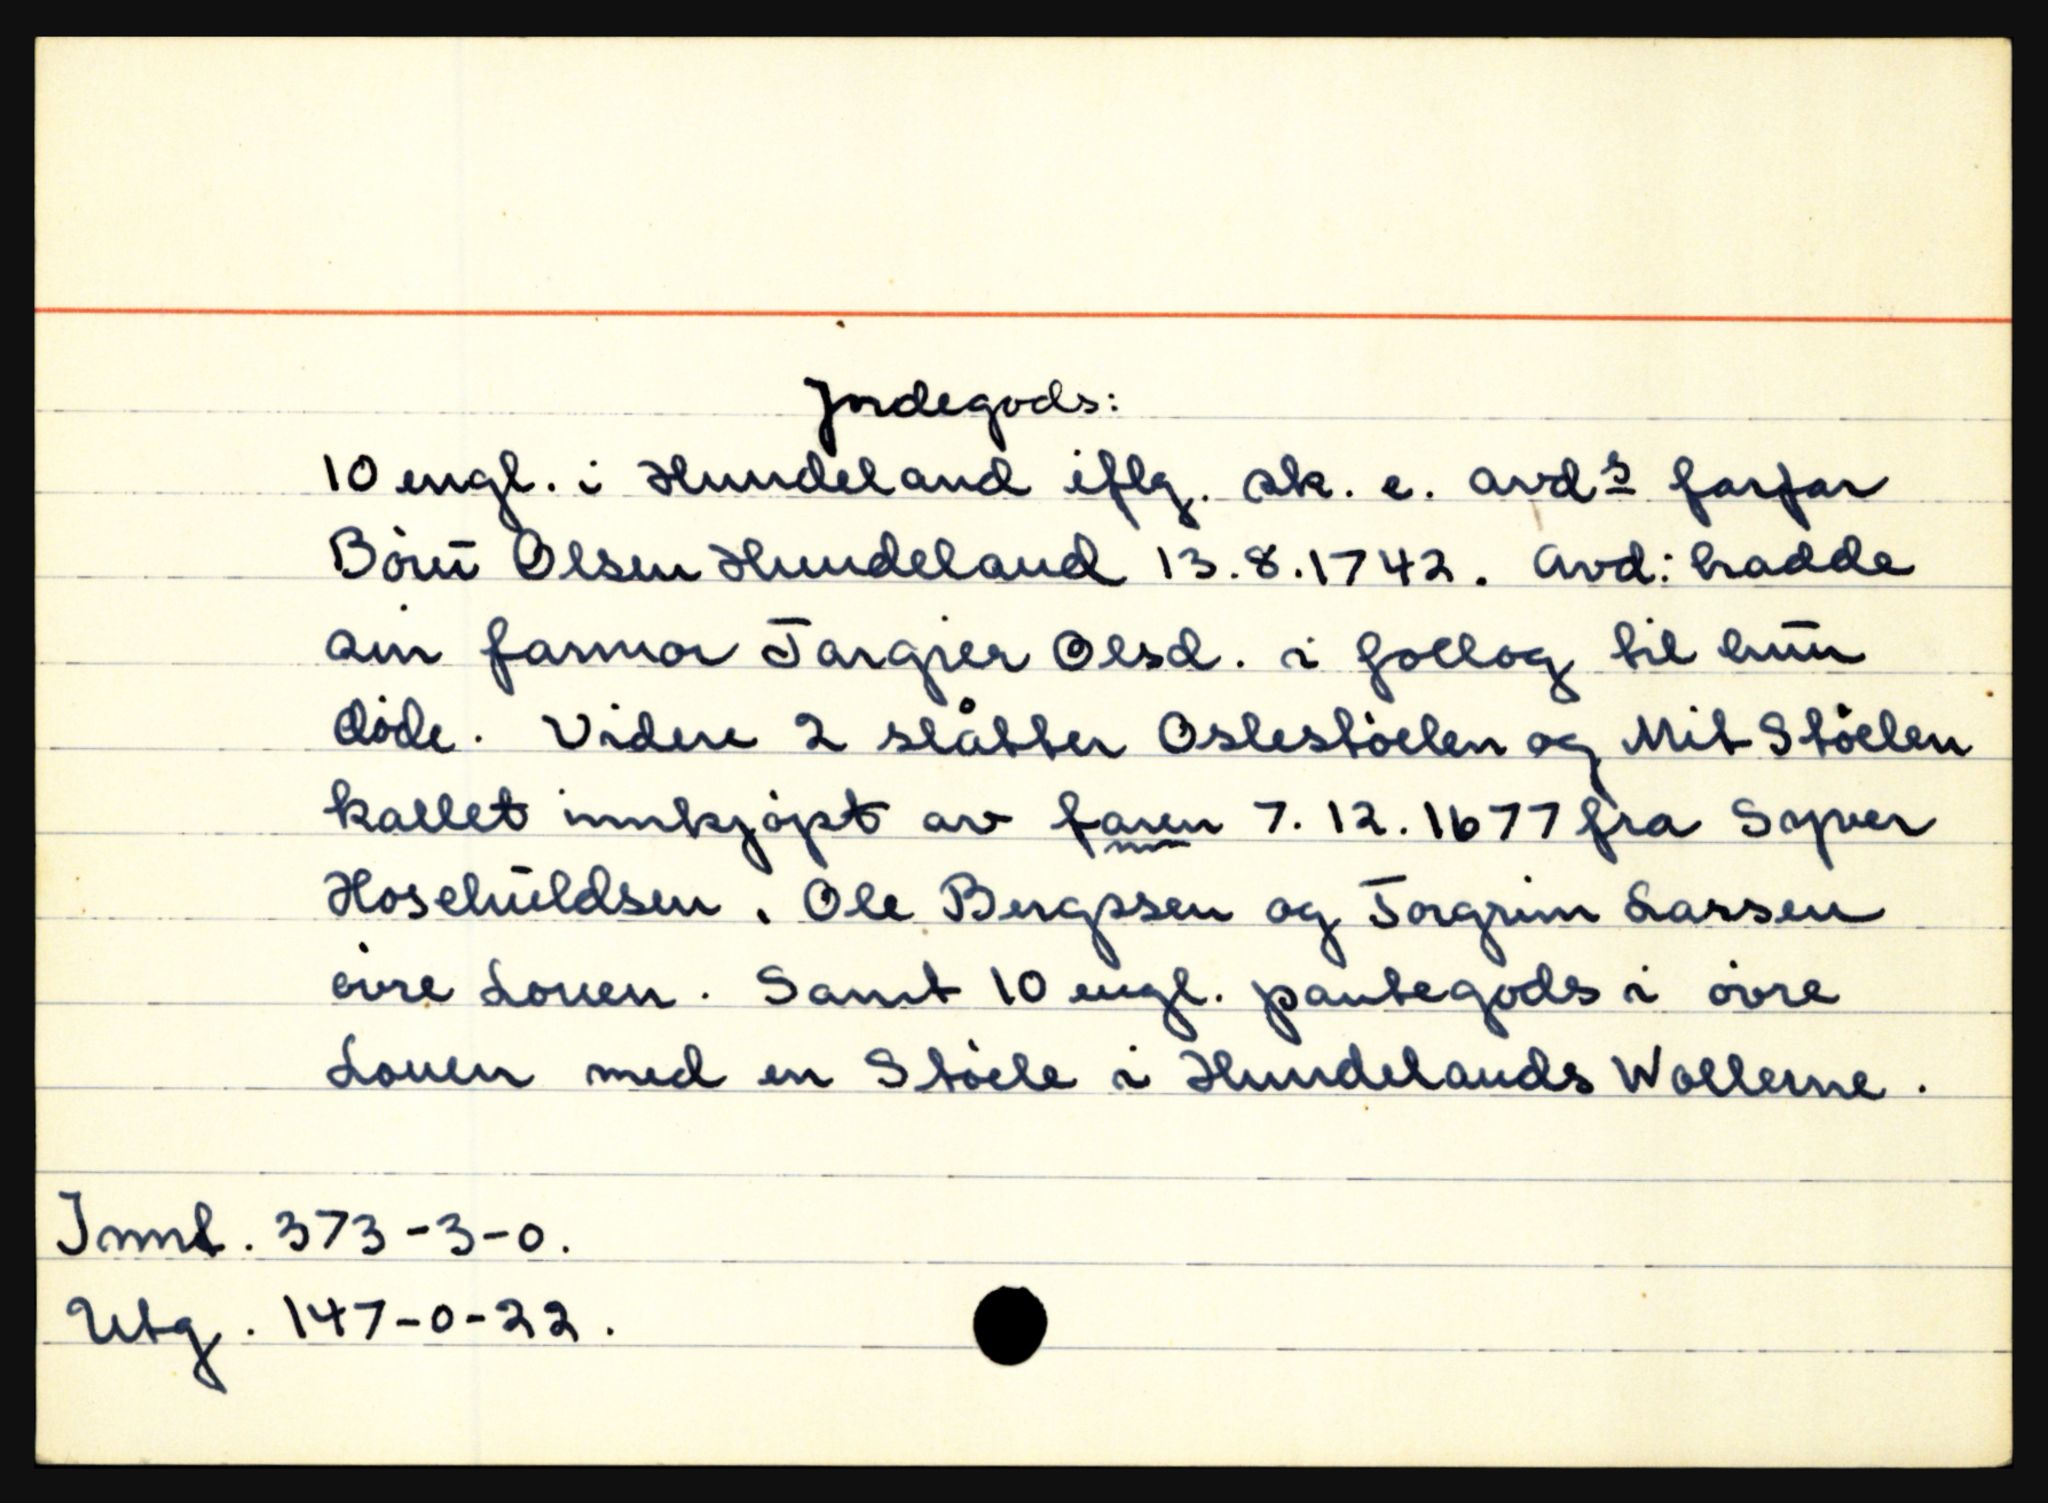 Jordegods:
10 engl. i Hundeland iflg. sk. e. avds farfar
Böru Olsen Hundeland 13.8.1742. Avd: hadde
sin farmor Targier Olsd. i follog til hun
döde. Videre 2 slåtter Oslestöelen og Mit Stöelen
kallet innkjöpt av faren 7.12.1677 fra Syver
Hoschuldsen, Ole Bergssen og Torgrim Larsen
övre Louen. Samt 10 engl. pantegods i övre
Louen med en Stöele i Hundelands Wollerne.
Innt. 373-3-0.
Utg. 147-0-22.